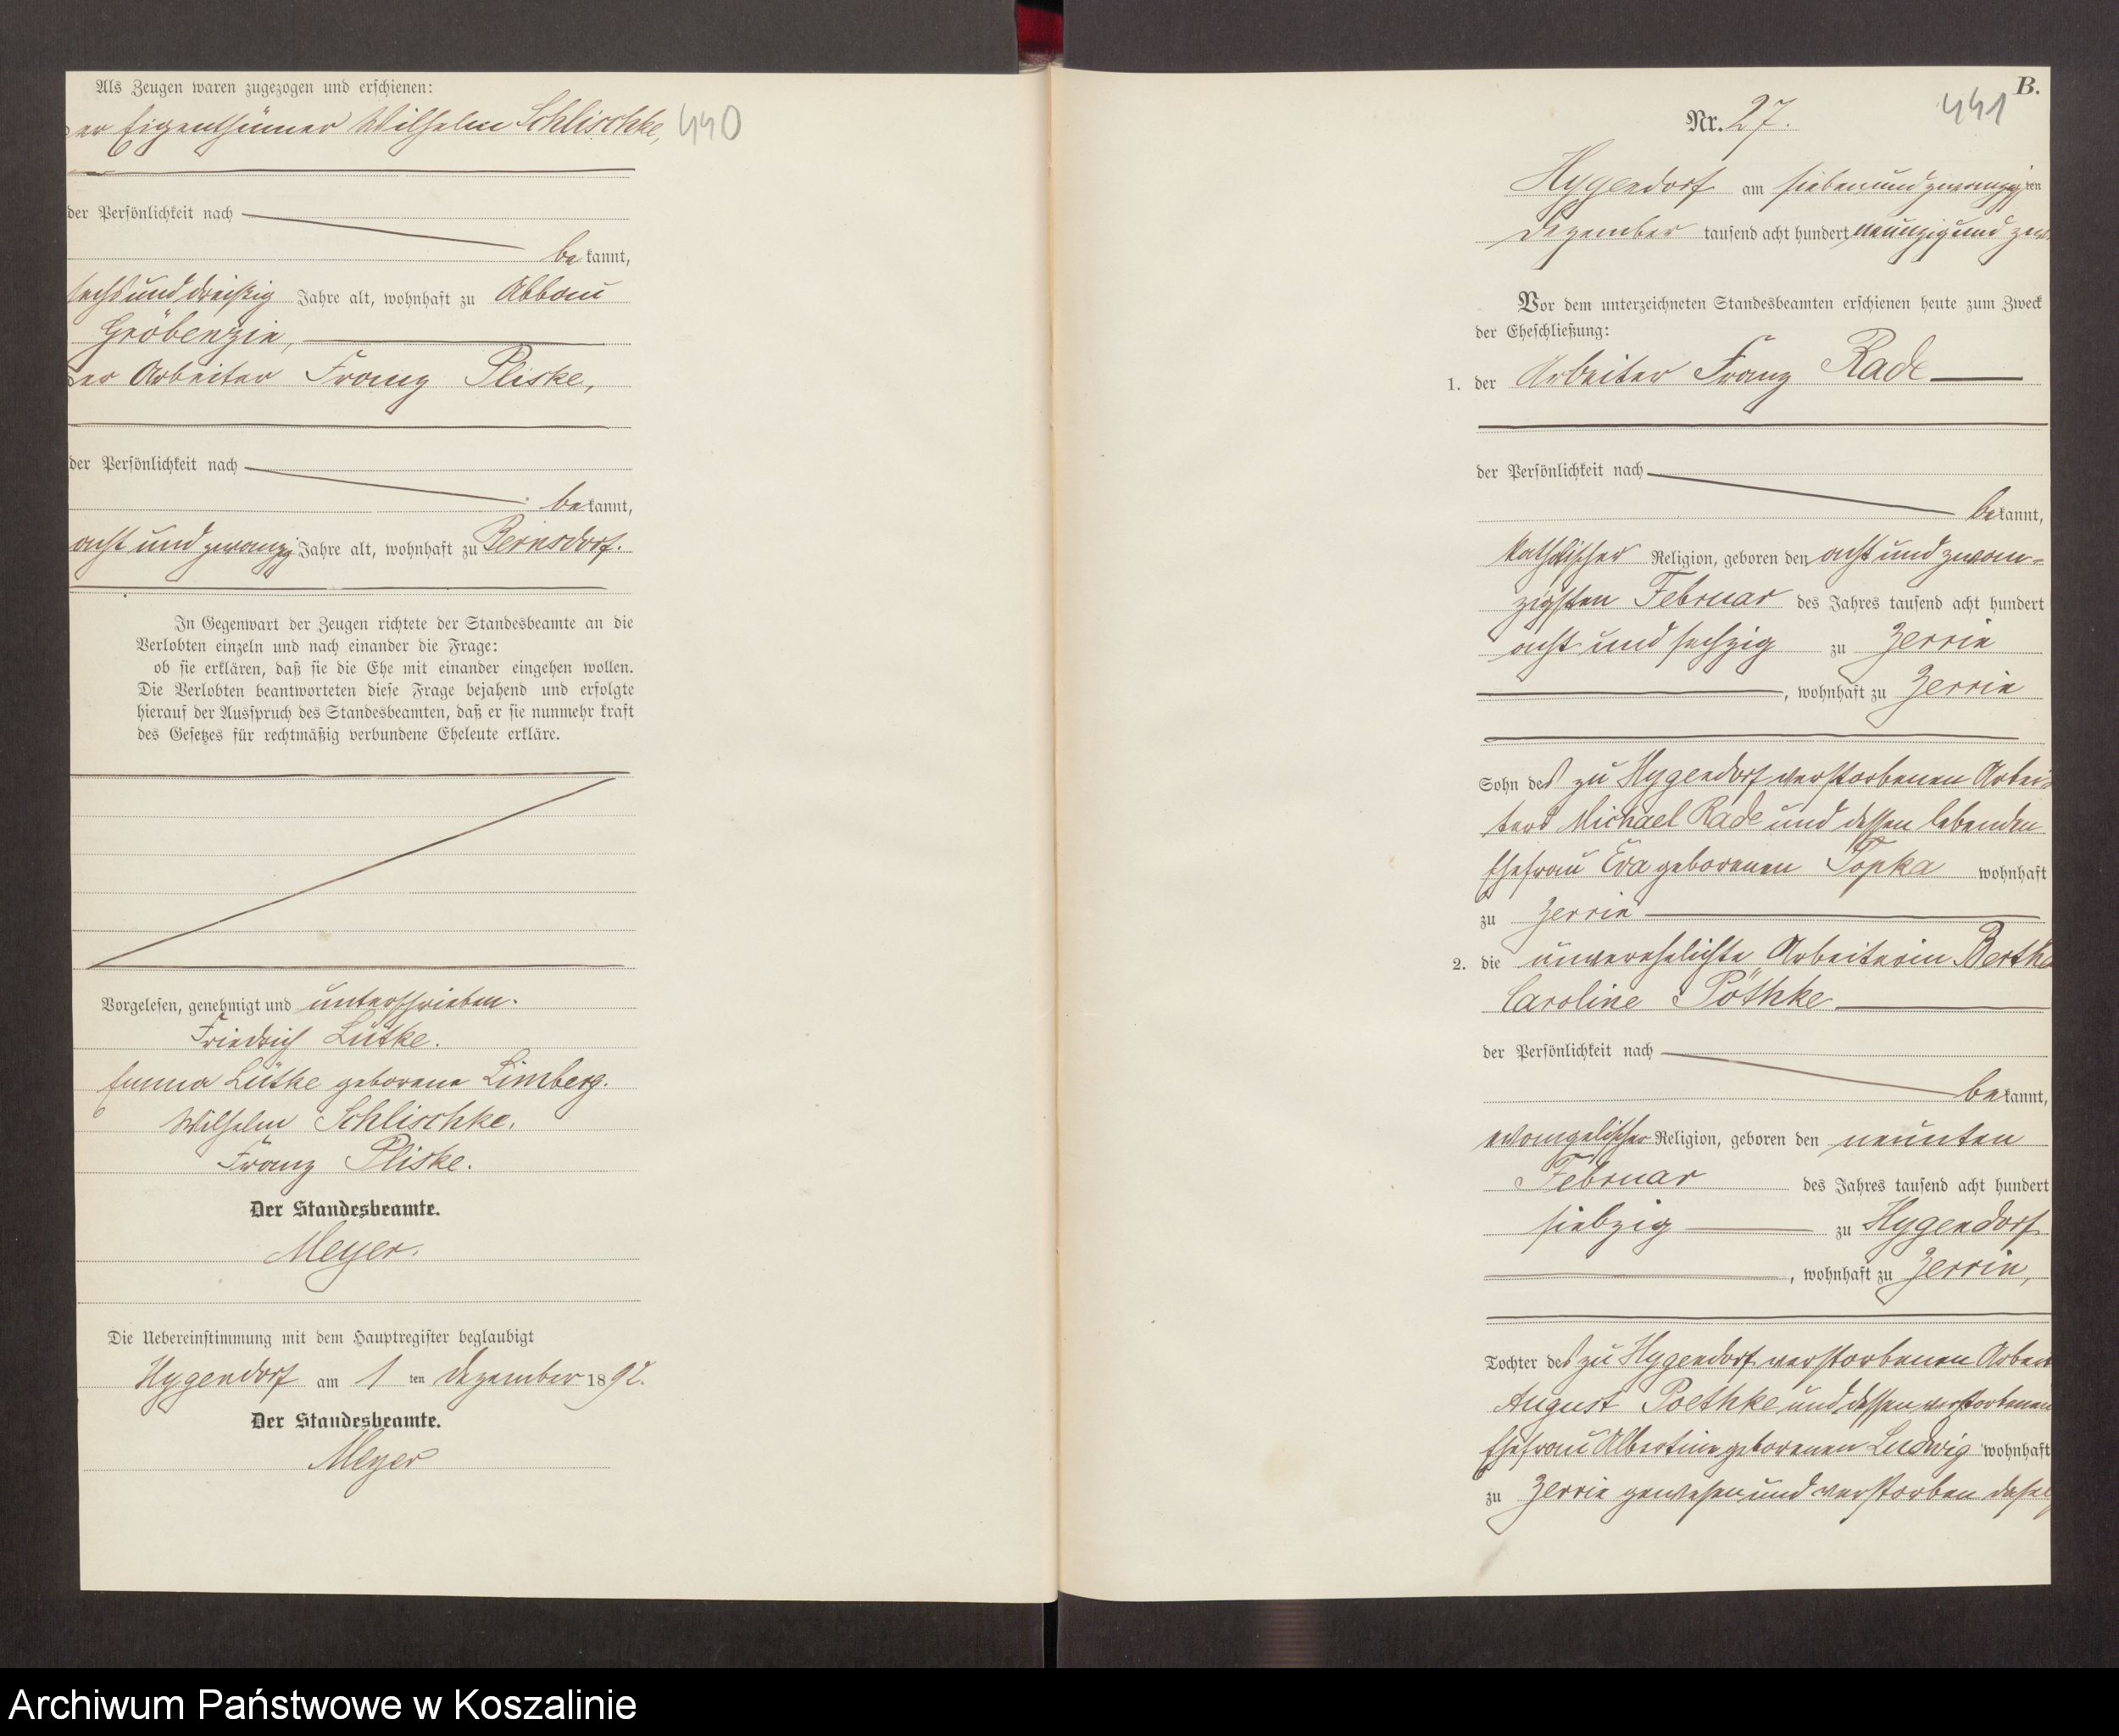 Als Zeugen waren zugezogen und erschienen:
er Eigenthümer Wilhelm Schlischke,
440
der Persönlichkeit nach
bekannt,
sechs und dreißig Jahre alt, wohnhaft zu Abbau
Gröbenzin,
der Arbeiter Franz Pliske,
der Persönlichkeit nach
bekannt,
acht und zwanzig Jahre alt, wohnhaft zu Bernsdorf.
In Gegenwart der Zeugen richtete der Standesbeamte an die
Verlobten einzeln und nach einander die Frage:
ob sie erklären, daß sie die Ehe mit einander eingehen wollen.
Die Verlobten beantworteten diese Frage bejahend und erfolgte
hierauf der Ausspruch des Standesbeamten, daß er sie nunmehr kraft
des Gesetzes für rechtmäßig verbundene Eheleute erkläre.
Vorgelesen, genehmigt und unterschrieben.
Friedrich Lütke.
Emma Lütke geborene Limberg.
Wilhelm Schlischke.
Franz Pliske.
Der Standesbeamte.
Meyer.
Die Uebereinstimmung mit dem Hauptregister beglaubigt
Hygendorf am 1 ten Dezember 1892.
Der Standesbeamte.
Meyer
B.
441
Nr. 27.
Hygendorf am siebenundzwanzigten
Dezember tausend acht hundert neunzig und zwei
Vor dem unterzeichneten Standesbeamten erschienen heute zum Zweck
der Eheschließung:
1. der Arbeiter Franz Rade
der Persönlichkeit nach
bekannt,
katholischer Religion, geboren den acht und zwan-
zigsten Februar des Jahres tausend acht hundert
acht und sechzig zu Zerrin
, wohnhaft zu Zerrin
Sohn des zu Hygendorf verstorbenen Arbei-
ters Michael Rade und dessen lebenden
Ehefrau Eva geborenen Topka wohnhaft
zu Zerrin
2. die unverehelichte Arbeiterin Bertha
Caroline Pöthke
der Persönlichkeit nach
bekannt,
evangelischer Religion, geboren den neunten
Februar des Jahres tausend acht hundert
siebzig zu Hygendorf
, wohnhaft zu Zerrin,
Tochter des zu Hygendorf verstorbenen Arbei
August Poethke und dessen verstorbenen
Ehefrau Albertine geborenen Ludwig wohnhaft
zu Zerrin gewesen und verstorben dasel
Archiwum Państwowe w Koszalinie